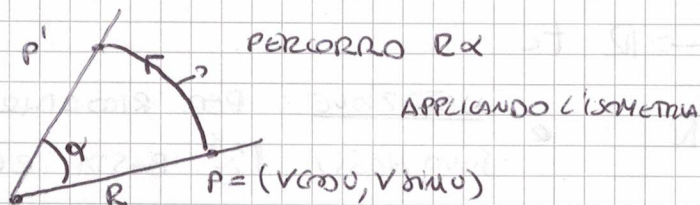 P'
PERCORRO Rα
APPLICANDO L'ISOMETRIA
α
R
P = (V cos υ, V sin υ)